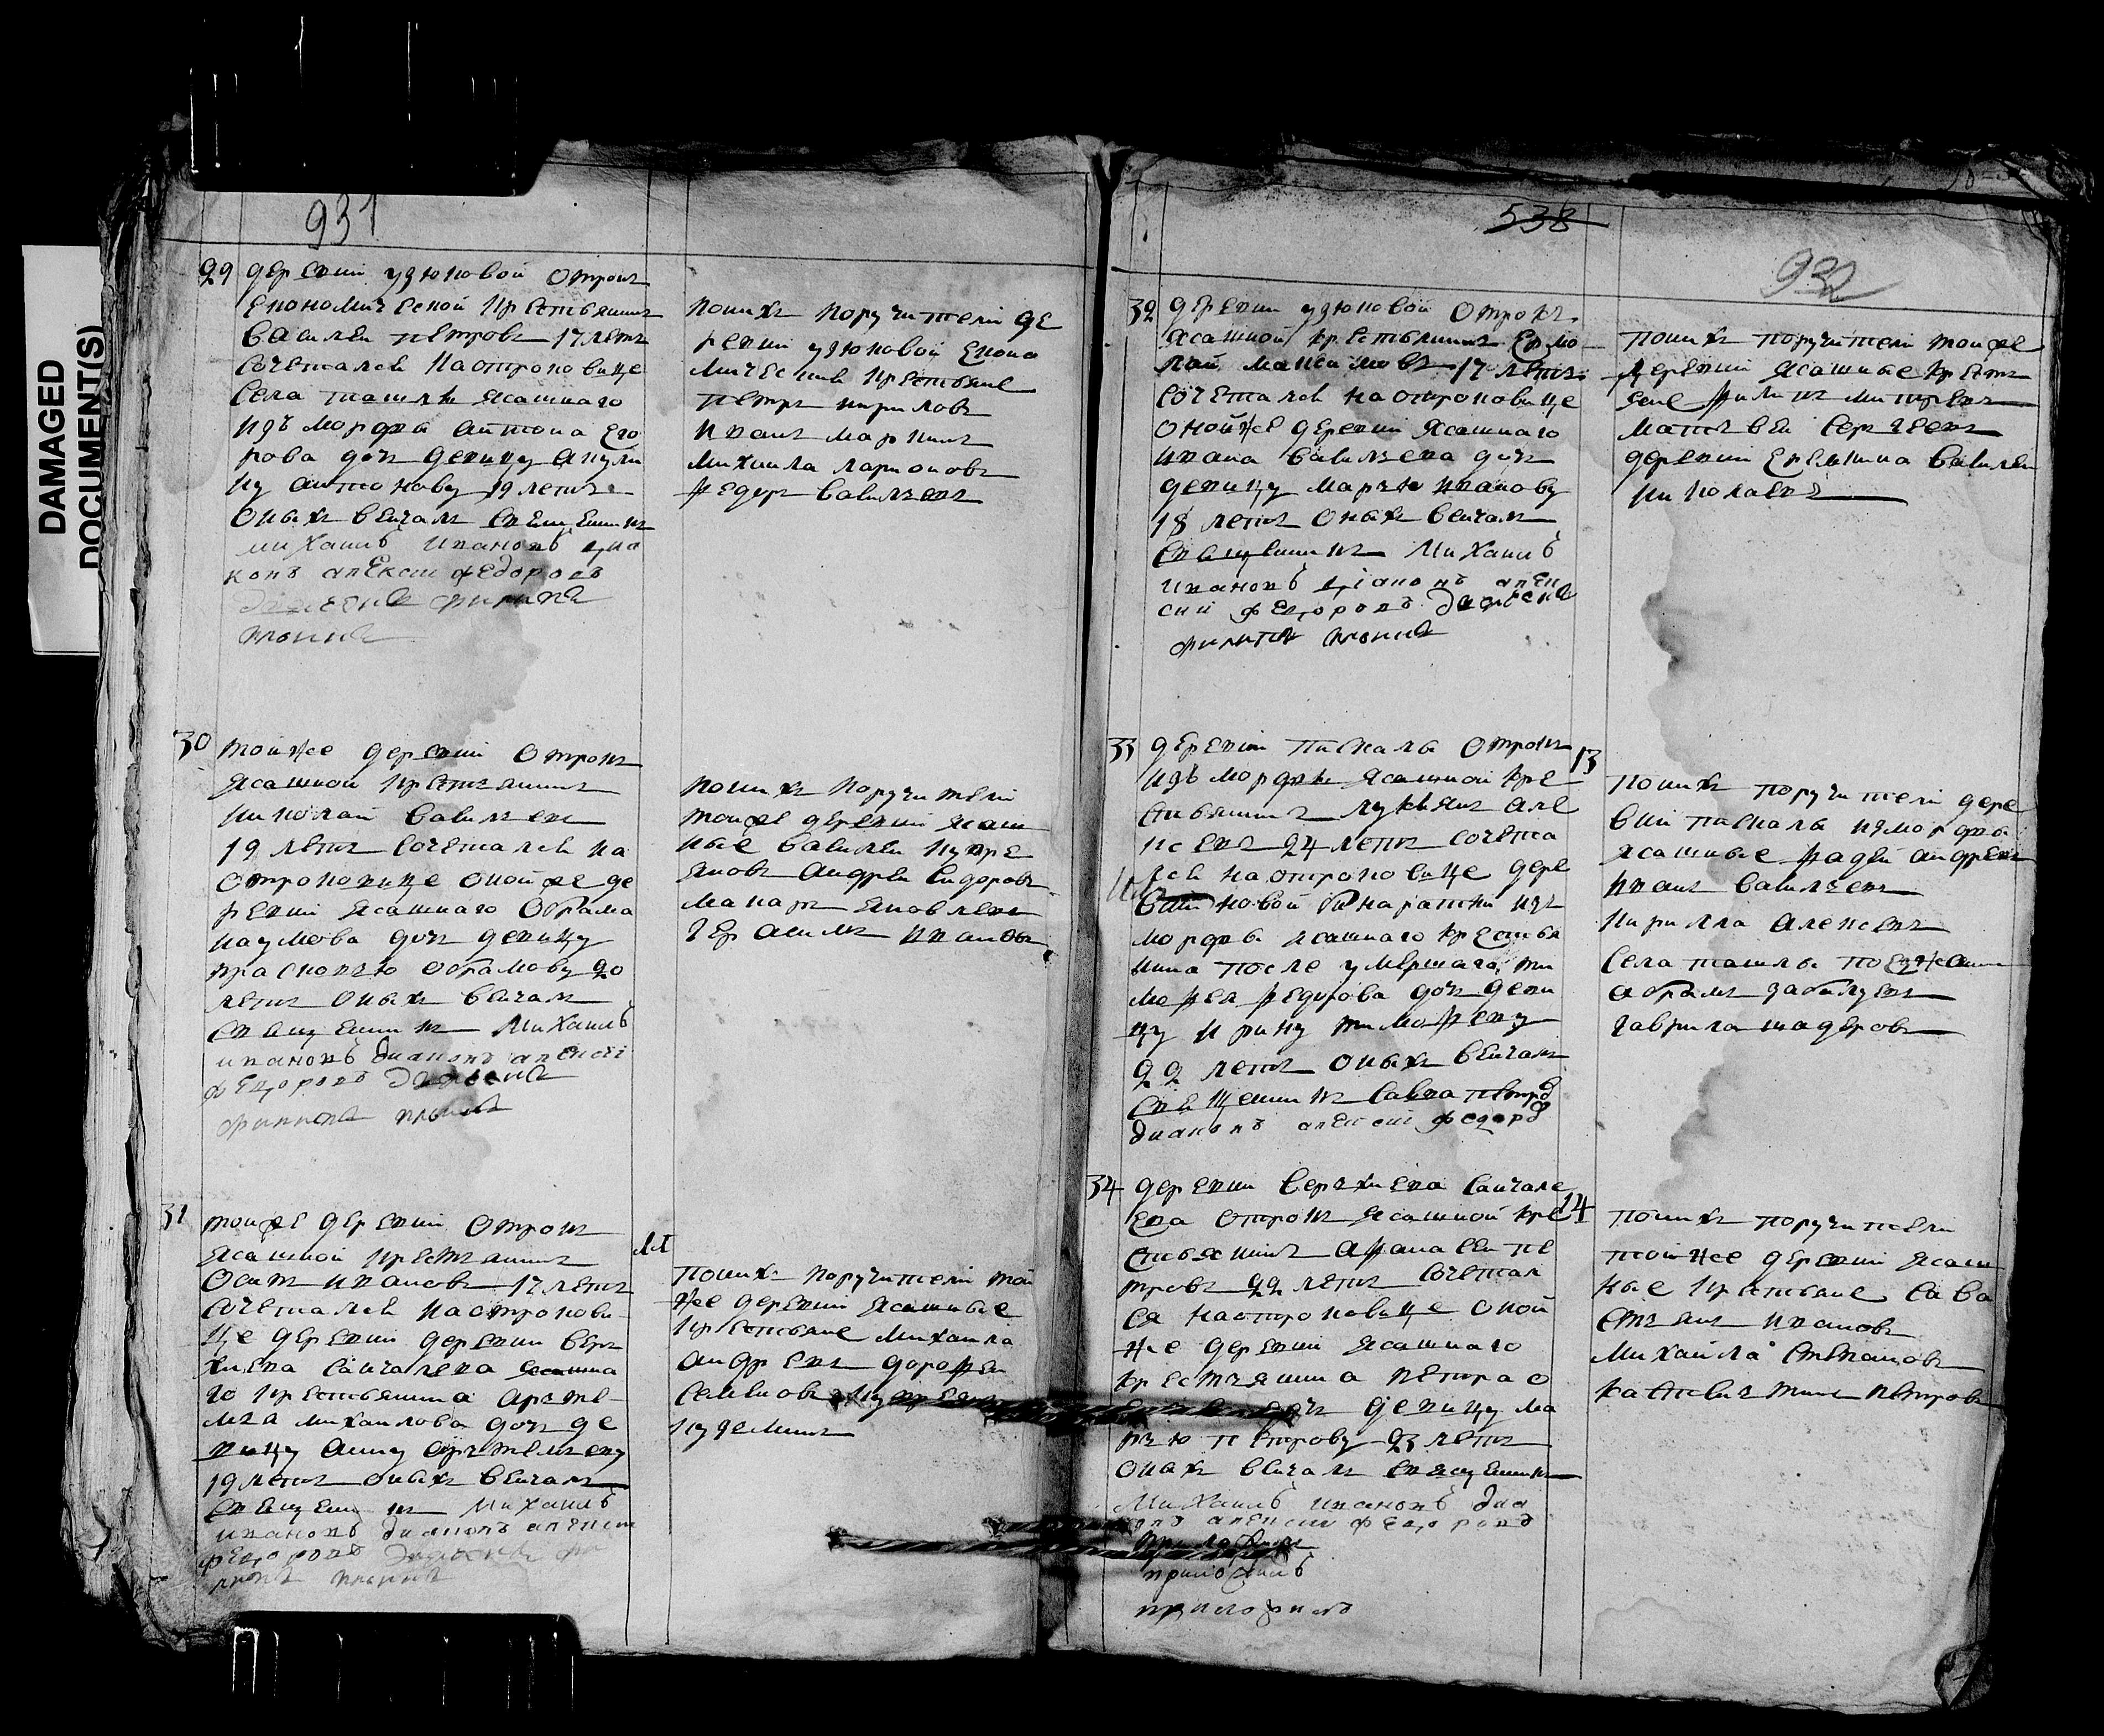 DAMAGED
DOCUMENT(S)
931
29 деревни узюковой отрокъ
економической крестьянинъ
василеи петровъ 17 летъ
сочетался на отроковице
села ташлы ясашнаго
изъ морфы антона его
рова дочь девицу акули
ну антонову 19 летъ
оныхъ венчалъ священникъ
михаилъ ивановъ диа
конъ алексеи федоровъ
поних поручители де
ревни узюковой еконо
мические крестьяне
петръ кириловъ
иванъ маркинъ
михаила ларионовъ
федоръ васильевъ
30 тойже деревни отрокъ
ясашной крестьянинъ
николаи васильевъ
19 летъ сочетался на
отроковице оной же де
ревни ясашнаго обрама
наумова дочь девицу
прасковью обрамову 20
летъ оныхъ венчалъ
священникъ михаилъ
ивановъ диаконъ алексеи
федоровъ
поних поручители
тойже деревни ясаш
ные василеи купре
яновъ андреи сидоровъ
макаръ яковлевъ
герасимъ ивановъ
31 тойже деревни отрокъ
ясашной крестьянинъ
осипъ ивановъ 17 летъ
сочетался на отрокови
це деревни деревни верь
хнева санчалеева ясашна
го крестьянина арте
мья михаилова дочь де
вицу анну артемьеву
19 летъ оныхъ венчалъ
священникъ михаилъ
ивановъ диаконъ алексеи
федоровъ
поних поручители той
же деревни ясашные
крестьяне михаила
андреевъ дорофеи
семеновъ
кузминъ
538
932
32 деревни узюковой отрокъ
ясашной крестьянинъ ермо
лай максимовъ 17 летъ
сочетался на отроковице
оной же деревни ясашнаго
ивана васильева дочь
девицу марью иванову
18 летъ оныхъ венчалъ
священникъ михаилъ
ивановъ діаконъ алек
сий федоровъ
поних поручители тойже
деревни ясашные кресть
яне филипъ митревъ
матвеи сергеевъ
деревни еремкина василеи
николаевъ
33 деревни пискалы отрокъ
изъ морфы ясашной кре
стьянинъ лукьянъ але
ксевъ 24 летъ сочета
лся на отроковице дере
вни новой бинаратки изъ
морфы ясашнаго крестья
нина после умершаго ти
мофея федорова дочь деви
цу ирину тимофееву
22 летъ оныхъ венчалъ
священникъ савва петровъ
диаконъ алексеи федоровъ
13
поних поручители дере
вни пискалы изморфы
ясашные фадей андреевъ
иванъ васильевъ
кирилла алексевъ
села ташлы поезжаня
абрамъ
гаврила шадеровъ
34 деревни верьхнева санчале
ева отрокъ ясашной кре
стьянинъ афанасеи пе
тровъ 22 летъ сочетал
ся на отроковице оной
же деревни ясашнаго
крестьянина петра
дочь девицу ма
рью петрову 23 летъ
оныхъ венчалъ священникъ
михаилъ ивановъ диа
конъ алексеи федоровъ
приложилъ
14
поних поручители
тойже деревни ясаш
ные крестьяне сава
степанъ ивановъ
михайла степановъ
петровъ